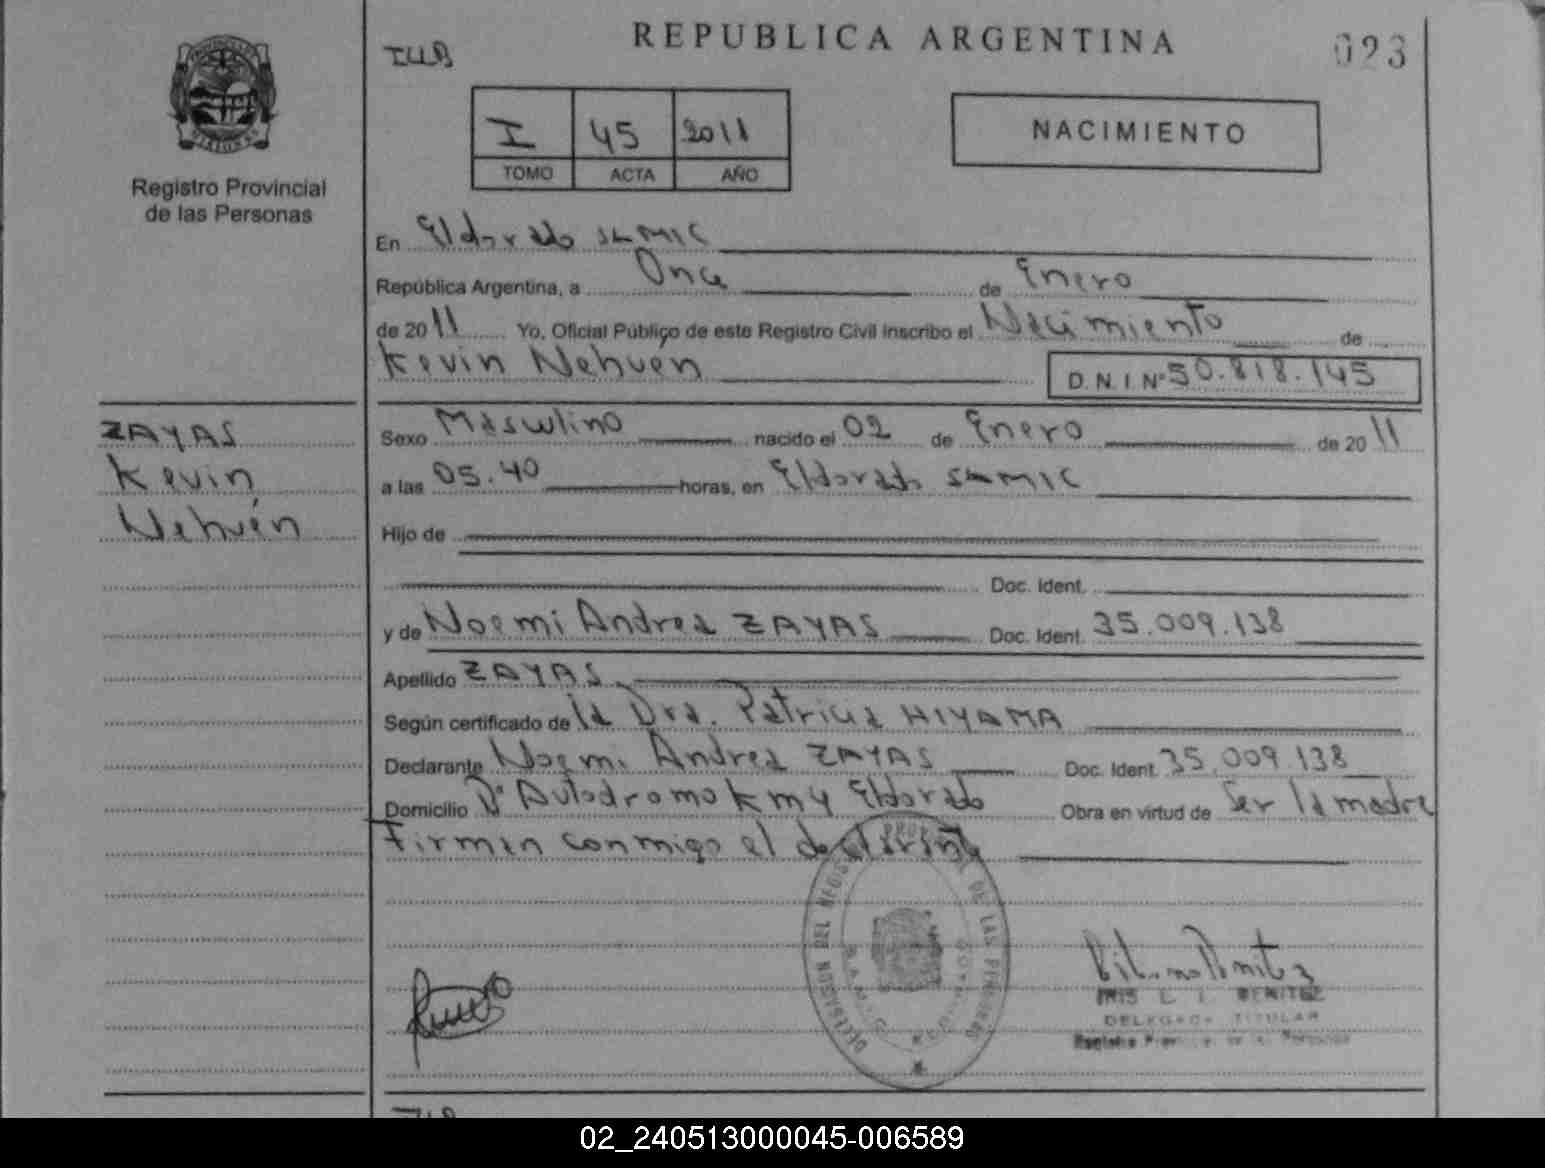 REPUBLICA ARGENTINA
023
I 45 2011
TOMO ACTA AÑO
NACIMIENTO
Registro Provincial
de las Personas
En Eldorado SAMIC
República Argentina, a Once de Enero
de 2011 Yo, Oficial Público de este Registro Civil inscribo el Nacimiento de
Kevin Nehuen D.N.I. Nº 50.818.145
ZAYAS
Kevin
Nehuén
Sexo Masculino nacido el 02 de Enero de 2011
a las 05.40 horas, en Eldorado SAMIC
Hijo de
Doc. Ident.
y de Noemi Andrea ZAYAS Doc. Ident. 35.009.138
Apellido ZAYAS
Según certificado de la Dra. Patricia HIYAMA
Declarante Noemi Andrea ZAYAS Doc. Ident. 35.009.138
Domicilio Bº Autodromo km 4 Eldorado Obra en virtud de Ser la madre
Firman conmigo el declarante
DELEGACION DEL REGISTRO PROVINCIAL DE LAS PERSONAS
L. I. BENITEZ
DELEGADA TITULAR
02_240513000045-006589